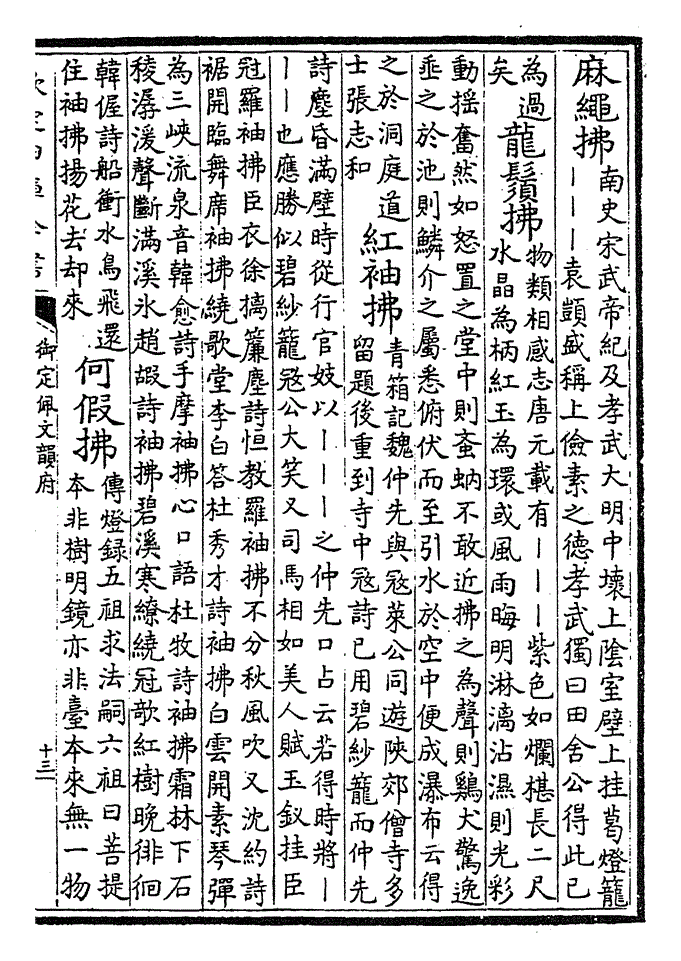 麻繩拂
南史宋武帝紀及孝武大明中壞上陰室壁上挂葛燈籠
———袁顗盛稱上儉素之德孝武獨曰田舍公得此已
為過
矣
龍鬚拂
物類相感志唐元載有———紫色如爛椹長二尺
水晶為柄紅玉為環或風雨晦明淋漓沾濕則光彩
動揺奮然如怒置之堂中則蚉蚋不敢近拂之為聲則鷄犬驚逸
垂之於池則鱗介之屬悉俯伏而至引水於空中便成瀑布云得
之於洞庭道
士張志和
紅袖拂
青箱記魏仲先與冦萊公同遊陜郊僧寺多
留題後重到寺中冦詩已用碧紗籠而仲先
詩塵昏滿壁時從行官妓以———之仲先口占云若得時將—
——也應勝似碧紗籠冦公大笑又司馬相如美人賦玉釵挂臣
冠羅袖拂臣衣徐摛簾塵詩恒教羅袖拂不分秋風吹又沈約詩
裾開臨舞席袖拂繞歌堂李白答杜秀才詩袖拂白雲開素琴彈
為三峽流泉音韓愈詩手摩袖拂心口語杜牧詩袖拂霜林下石
稜潺湲聲斷滿溪氷趙嘏詩袖拂碧溪寒繚繞冠歌紅樹晚徘徊
韓偓詩船衝水鳥飛還
住袖拂揚花去却來
何假拂
傳燈録五祖求法嗣六祖曰菩提
本非樹明鏡亦非臺本來無一物
御定佩文韻府
十三